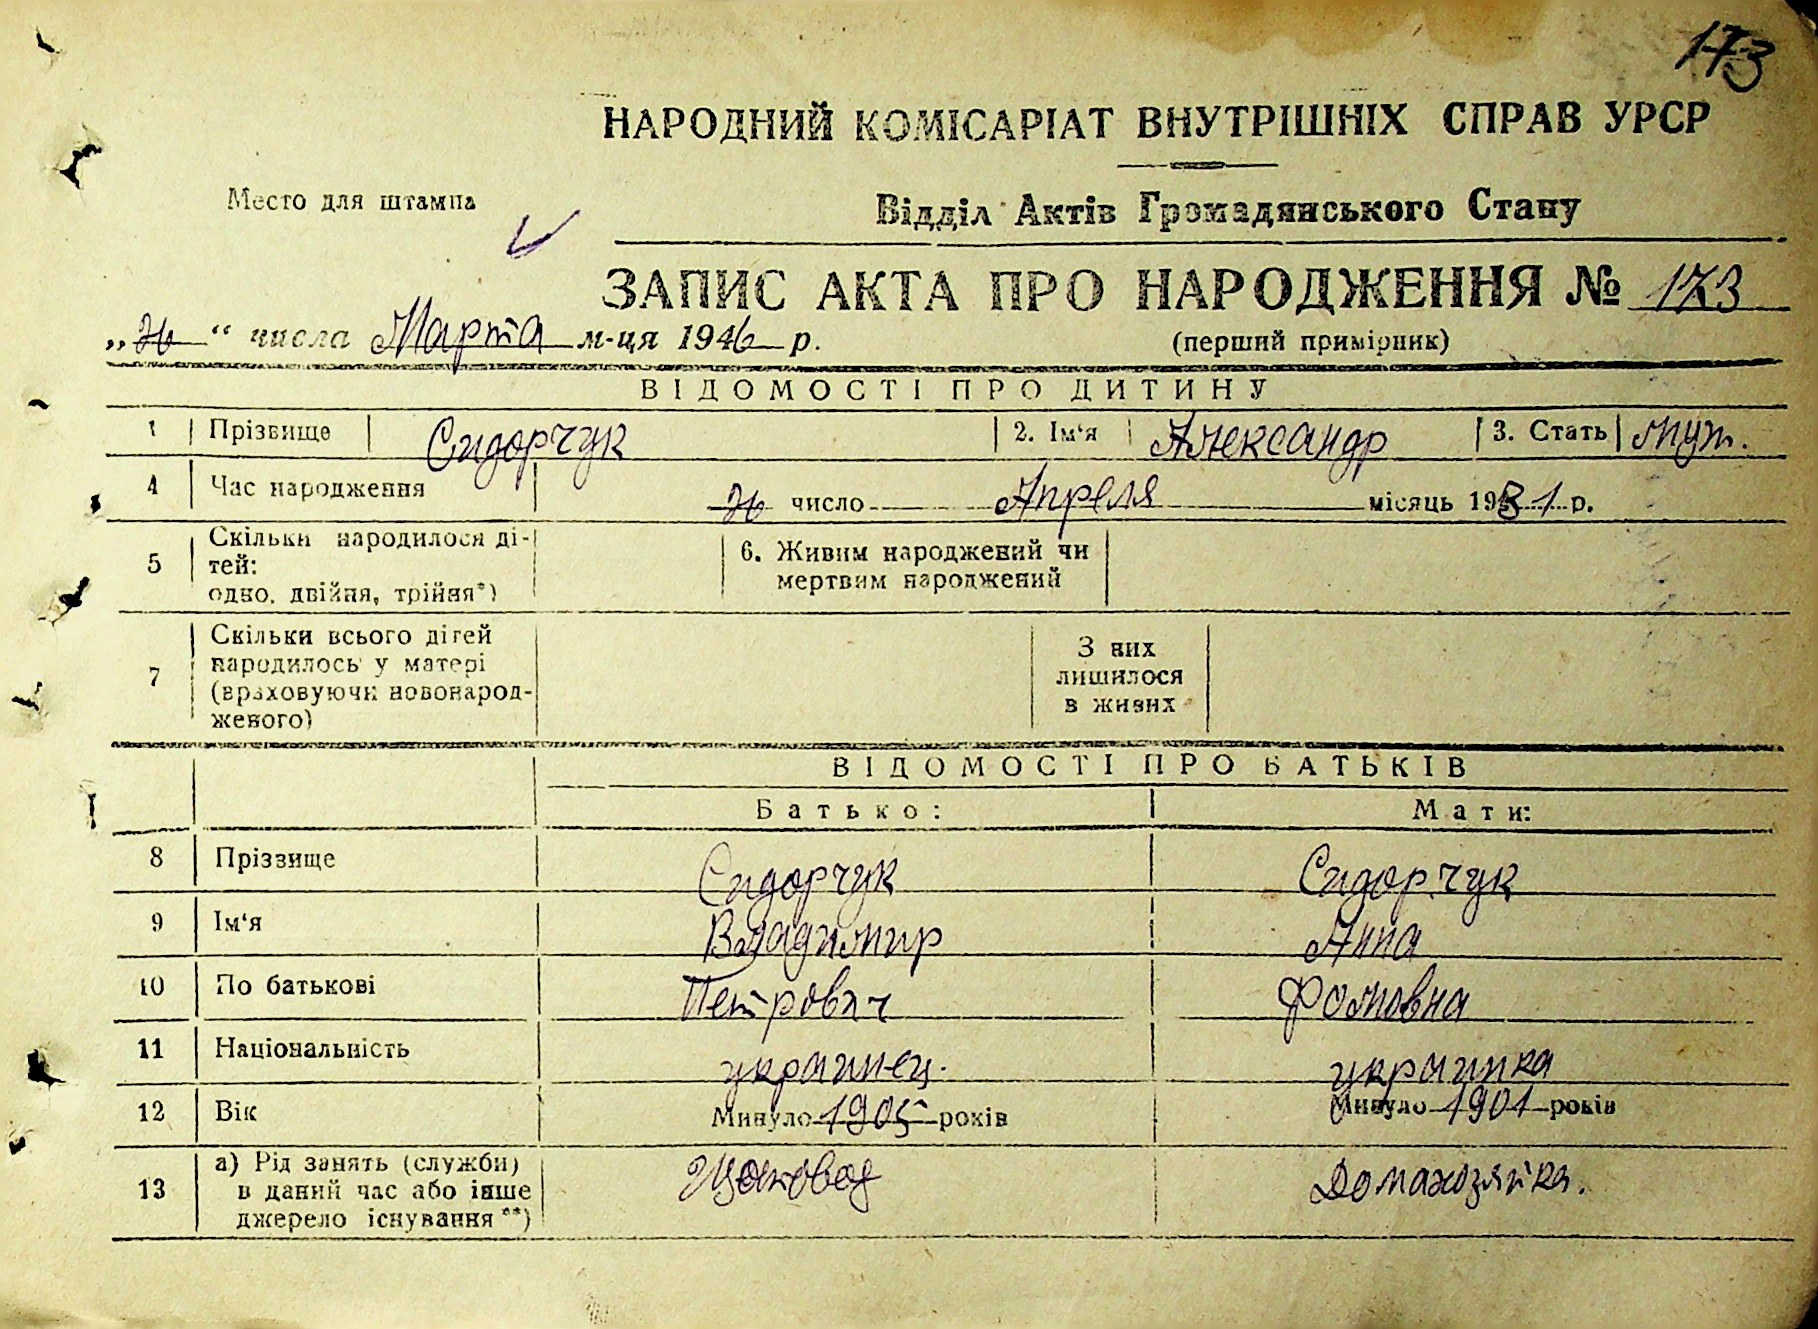 173
НАРОДНИЙ КОМІСАРІАТ ВНУТРІШНІХ СПРАВ УРСР
Место для штампа
Відділ Актів Громадянського Стану
ЗАПИС АКТА ПРО НАРОДЖЕННЯ № 173
„26“ числа Марта м-ця 1946 р.
(перший примірник)
ВІДОМОСТІ ПРО ДИТИНУ
1 Прізвище Сидорчук 2. Ім‘я Александр 3. Стать муж.
4 Час народження 26 число Апреля місяць 1931 р.
5 Скільки народилося ді-
тей:
одно, двійня, трійня*)
6. Живим народжений чи
мертвим народжений
7 Скільки всього дітей
народилось у матері
(враховуючи новонарод-
женого)
З них
лишилося
в живих
ВІДОМОСТІ ПРО БАТЬКІВ
Батько: Мати:
8 Прізвище Сидорчук Сидорчук
9 Ім‘я Владимир Анна
10 По батькові Петрович Фомовна
11 Національність украинец. украинка
12 Вік Минуло 1905 років Минуло 1901 років
13 а) Рід занять (служби)
в даний час або інше
джерело існування**)
Домахозяйка.